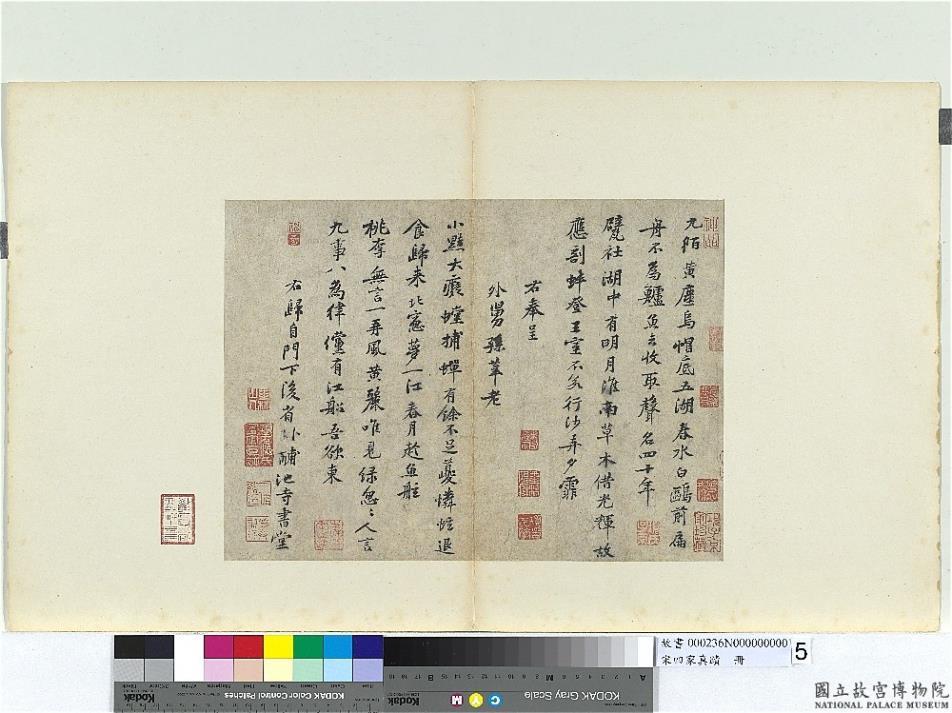 九陌黃塵烏帽底五湖春水白鷗前扁
舟不為鱸魚去收取聲名四十年
甓社湖中有明月淮南草木借光輝故
應剖蚌登王室不若行沙弄夕霏
右奉呈
外舅孫莘老
小黠大癡螳捕蟬有餘不足夔憐蚿退
食歸來北窻夢一江春月趁魚舩
桃李無言一再風黃鸝唯見綠怱〻人言
九事八為律儻有江船吾欲東
右歸自門下後省卧酺池寺書堂
KODAK Color Control Patches
Kodak
KODAK Gray Scale
故書 000236N000000000
宋四家真蹟 冊
5
國立故宮博物院
NATIONAL PALACE MUSEUM